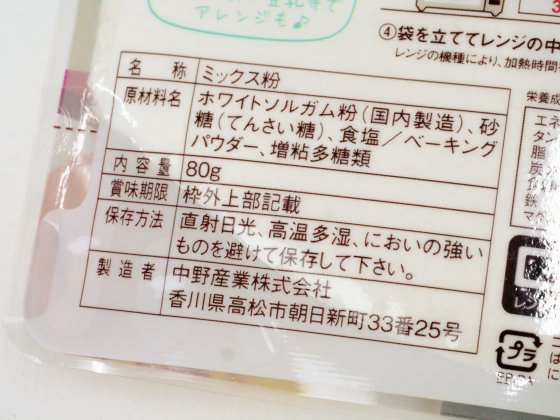 アレンジも♪
④袋を立ててレンジの中
レンジの機種により、加熱時間
名称 ミックス粉
原材料名 ホワイトソルガム粉(国内製造)、砂
糖(てんさい糖)、食塩/ベーキング
パウダー、増粘多糖類
内容量 80g
賞味期限 枠外上部記載
保存方法 直射日光、高温多湿、においの強い
ものを避けて保存して下さい。
製造者 中野産業株式会社
香川県高松市朝日新町33番25号
栄養成
エネ
タン
脂
炭
マグ
レン
プラ